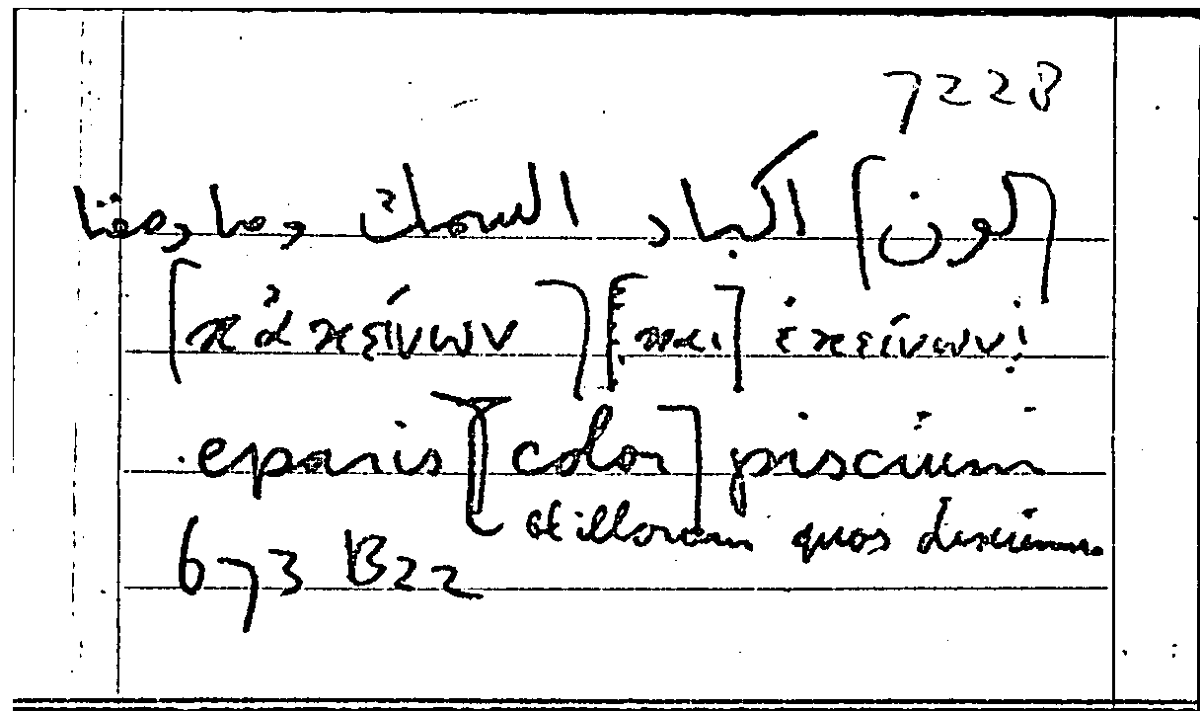 7228
[لون] اكباد السمك وما وصفنا
[κἀκείνων] [και] ἐκείνων:
eparis [color] piscium
et illorum quos diximus
673 B22